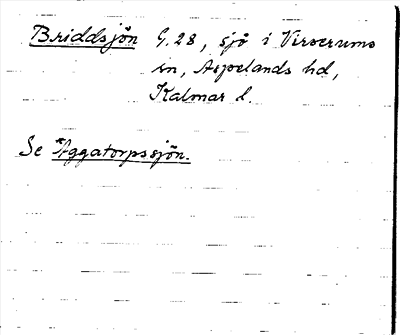 Briddsjön G. 28, sjö i Virserums
sn, Aspelands hd,
Kalmar l.
Se *Aggatorpssjön.